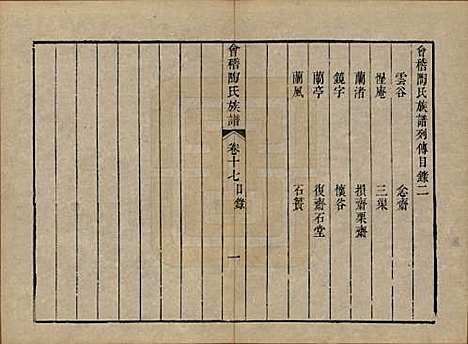 會稽陶氏族譜列傳目錄二
雲谷 念齋
惺庵 三渠
蘭渚 損齋栗齋
鏡宇 慎谷
蘭亭 復齋石堂
蘭風 石簣
會稽陶氏族譜 卷十七目錄 一